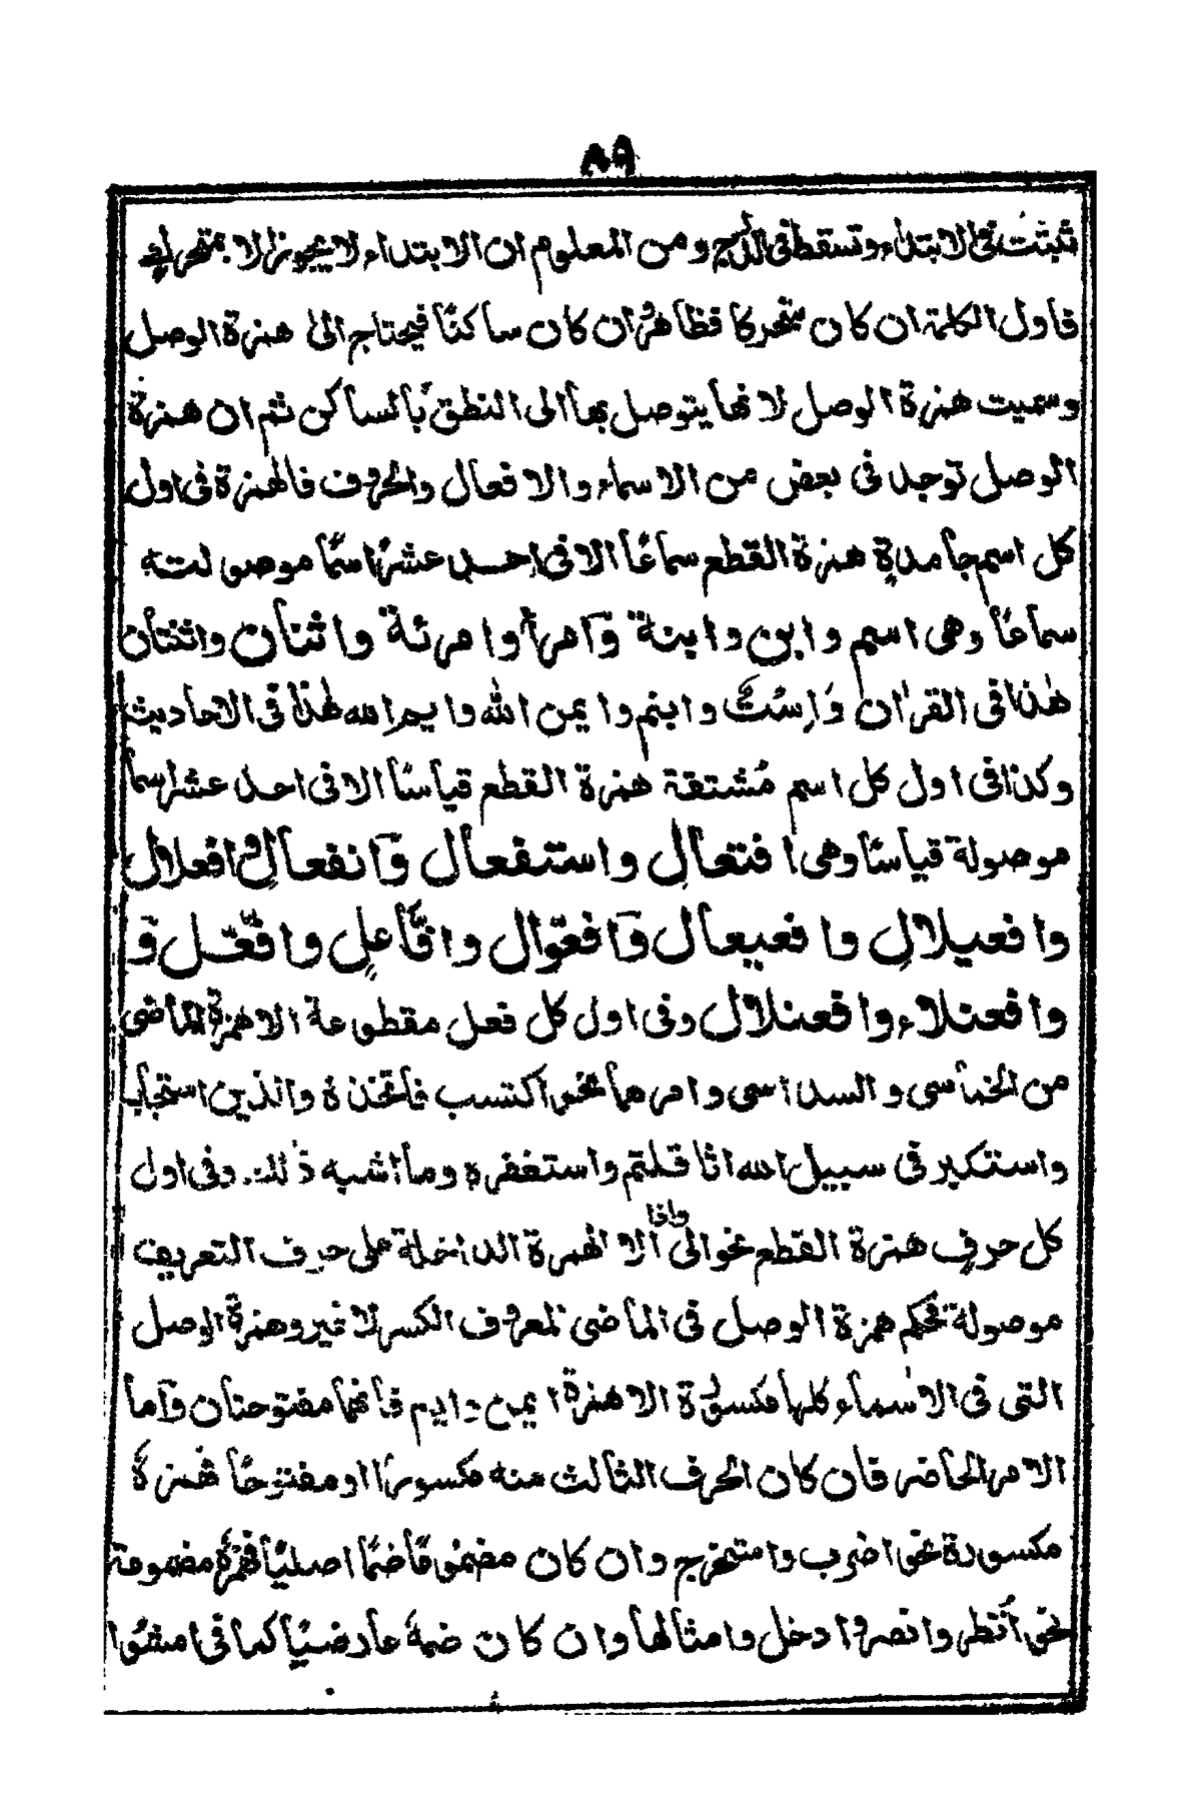 ٨٩
تثبت فى الابتداء وتسقط فى الدرج ومن المعلوم ان الابتداء لا يجوز الا بمتحرك
فاول الكلمة ان كان متحركا فظاهر وان كان ساكنًا فيحتاج الى همزة الوصل
وسميت همزة الوصل لانها يتوصل بها الى النطق بالساكن ثم ان همزة
الوصل توجد فى بعض من الاسماء والافعال والحروف فالهمزة فى اول
كل اسم جامدةٍ همزة القطع سماعًا الا فى احد عشر اسمًا موصولته
سماعًا وهى اسم وابن وابنة وَامرأ وامرئة واثنان واثنتان
هٰذا فى القرأن وَاِسْتٌ وابنم وايمن الله وايم الله هٰذا فى الاحاديث
وكذا فى اول كل اسم مُشتقة همزة القطع قياسًا الا فى احد عشر اسما
موصولة قياسًا وهى افتعال واستفعال وَانفعال وافعلال
وافعيلال وافعيعال وَافعوّال وافّاعل وافّعّل وَ
وافعنلاء وافعنلال وفى اول كل فعل مقطوعة الا همزة الماضى
من الخماسى والسداسى وامرهما نحو اكتسب فاتخذهُ والذين استجابـ
واستكبر فى سبيل الله اثاقلتم واستغفره وما اشبه ذٰلك. وفى اول
كل حرفٍ همزة القطع نحو الى واذا الا الهمزة الداخلة على حرف التعريف
موصولة فحكم همزة الوصل فى الماضى المعروف الكسر لا غير وهمزة الوصل
التى فى الاسماء كلها مكسورة الا همزة ايمن وايم فانهما مفتوحتان وَاما
الامر الحاضر فان كان الحرف الثالث منه مكسورًا او مفتوحًا فهمزةٌ
مكسورة نحو اضرب وامتخرج وان كان مضمومًا ضمًا اصليًا فهمزة مضمومة
نحو اُنظر وانصر وادخل وامثالها وان كان ضمةً عارضيًا كما فى امشوا